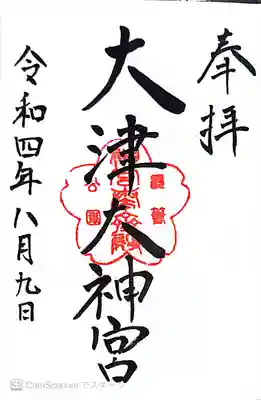 奉拝
大津大神宮
令和四年八月九日
CamScannerでスキャン